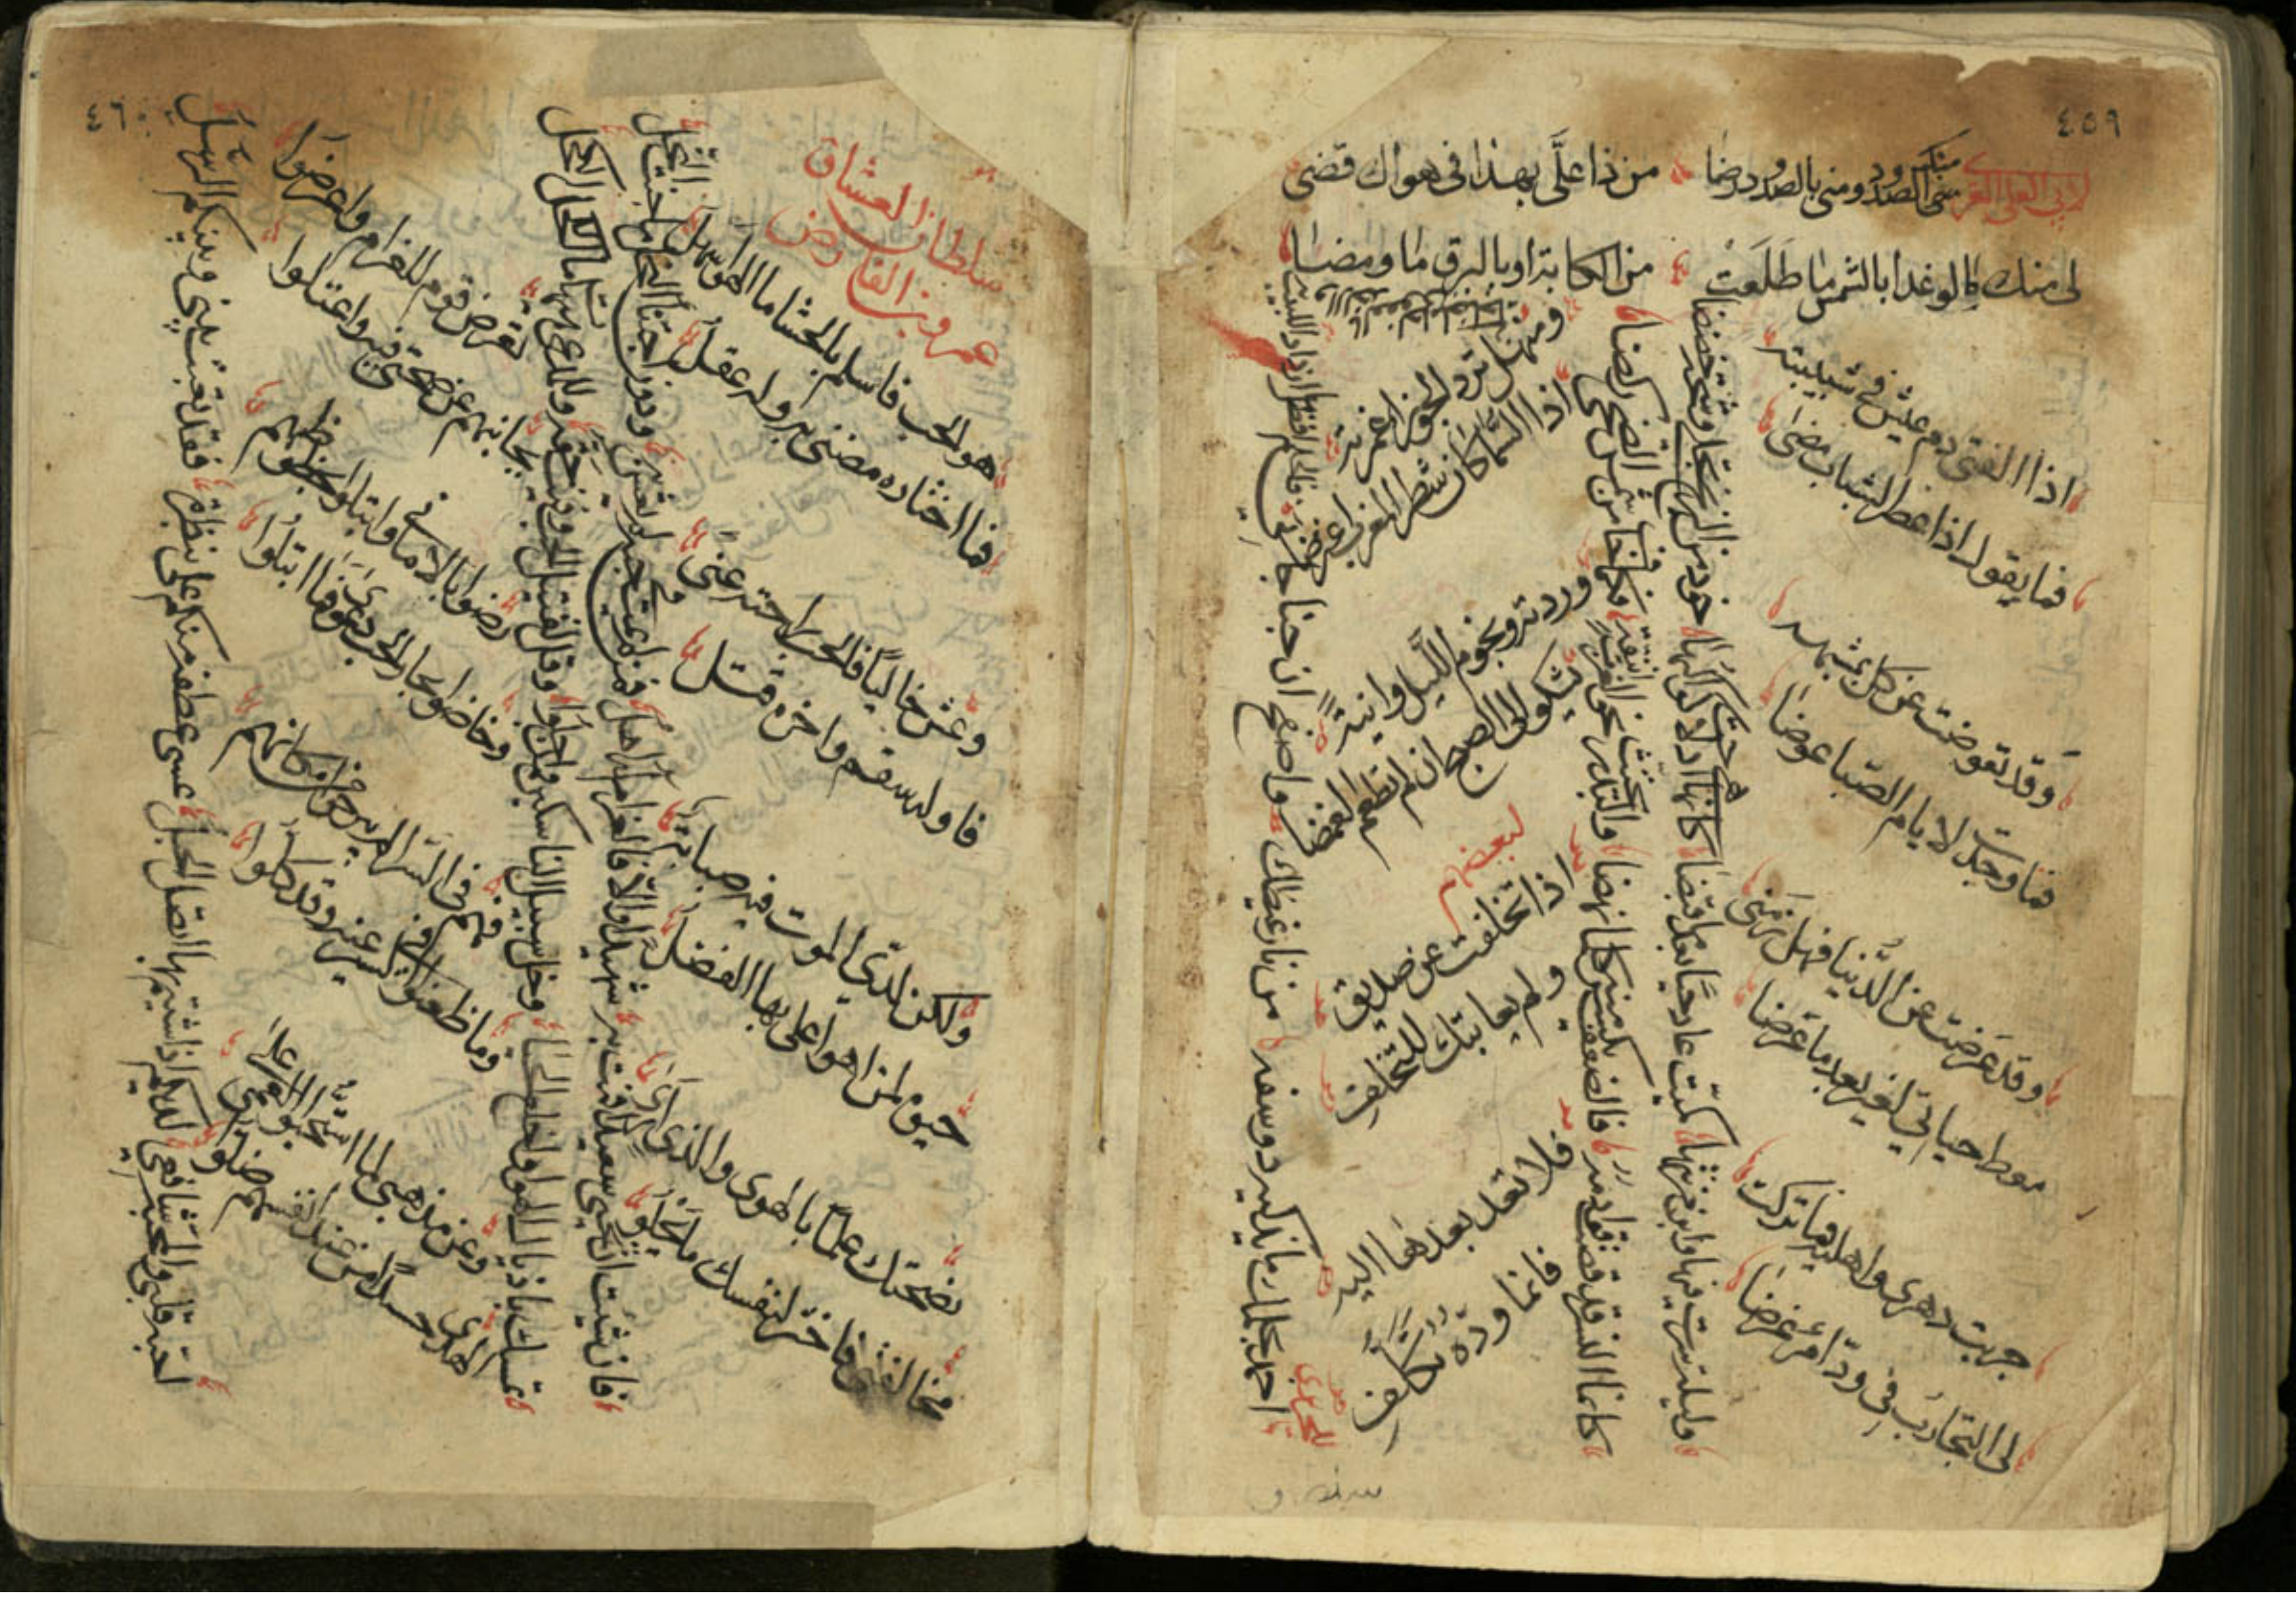 ٤٥٩
لابي العلى المعري
منك الصدود ومني بالصدود رضا من ذا علَّى بهذا في هواك قضى
لى منك ما لو غدا بالشمس ما طلعت من الكابة او بالبرق ما ومضا
اذا الفتى ذم عيش في شبيبته
فما يقول اذا عصر الشباب مضى
وقد تعوضت عن كل بمشبهه
فما وجدت لايام الصبا عوضا
وقد غرضت عن الدنيا فهل زمني
معط حياتي لغر بعد ما غرضا
جربت دهري واهليه فما تركت
لى التجارب في ود امرء غرضا
وليلة سرت فيها وابن مزنتها كميت عاد حيا بعد ما قبضا
كانما هي اذ لاحت كواكبها خود من الزنج تجلى وشحت خضضا
كانما النسر قد قصت قوادمه فالضعف يكسر منه كلما نهضا
والبدر يحتث نحو الغرب اينقه فكلما خاف من شمس الضحى ركضا
ومنهل ترد الجوزا غمرته
اذا السماكان شطر المغرب اعترضا
وردته ونجوم الليل وانية
تشكو الى الصبح ان لم تطعم الغمضا
لبعضهم
اذا تخلفت عن صديق
ولم يعاتبك للتخلف
فلا تعد بعدها اليه
فانما وده تكلف
للحريري
احمد بحلمك ما يذكيه ذو سفه من نار غيظك واصفح ان جنا جاني
٤٦٠
سلطان العشاق
عمر بن الفارض
هو الحب فاسلم بالحشا ما الهوى سهل
فما اختاره مضنى به وله عقل
وعش خاليًا فالحب راحته عنى
فاوله سقم واخره قتل
ولكن لدى الموت فيه صبابة
حيوة لمن اهوى على بها الفضل
نصحتك علمًا بالهوى والذي ارى
مخالفتي فاختر لنفسك ما يحلو
فان شئت ان تحيى سعيدًا فمت به شهيدًا والا فالغرام له اهل
فمن لم يمت في حبه لم يعش به ودون اجتناء النحل ما جنت النحل
تمسك باذيال الهوى واخلع الحيا وخل سبيل الناسكين وان جلوا
وقل لقتيل الحب وفيت حقه وللمدعي هيهات ما الكحل الكحل
تعرض قوم للغرام واعرضوا
بجانبهم عن صحتي فيه واعتلوا
رضوا بالاماني وابتلوا بحظوظهم
وخاضوا بحار الحب دعوى فما ابتلوا
فهم في السرى لم يبرحوا من مكانهم
وما ظعنوا في السير عنه وقد كلوا
وعن مذهبي لما استحبوا العمى على
الهدى حسدًا من عند انفسهم ضلوا
احبة قلبي والمحبة شافعي لديكم اذا شئتم بها اتصل الحبل
عسى عطفة منكم على بنظرة فقد تعبت بيني وبينكم الرسل